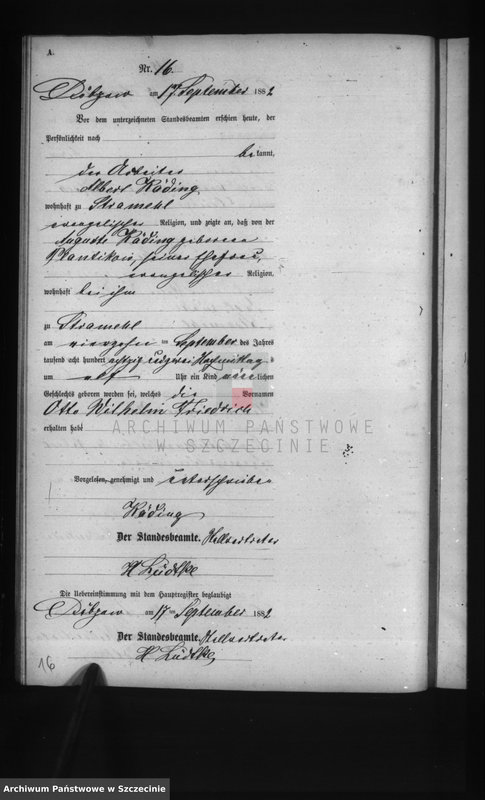 A.
Nr. 16.
Dübzow am 17 September 1882
Vor dem unterzeichneten Standesbeamten erschien heute, der
Persönlichkeit nach
bekannt,
der Arbeiter
Albert Räding
wohnhaft zu Stramehl
evangelischer Religion, und zeigte an, daß von der
Auguste Räding geborene
Plantikow, seiner Ehefrau,
evangelischer Religion,
wohnhaft bei ihm
zu Stramehl
am vierzehn ten September des Jahres
tausend acht hundert achtzig und zwei Nachmittags
um elf Uhr ein Kind männlichen
Geschlechts geboren worden sei, welches die Vornamen
Otto Wilhelm Friedrich
erhalten habe
ARCHIWUM PAŃSTWOWE
W SZCZECINIE
Vorgelesen, genehmigt und unterschrieben
Räding
Der Standesbeamte. Stellvertreter
H Lüdtke
Die Uebereinstimmung mit dem Hauptregister beglaubigt
Dübzow am 17 ten September 1882
Der Standesbeamte. Stellvertreter
H Lüdtke
16
Archiwum Państwowe w Szczecinie